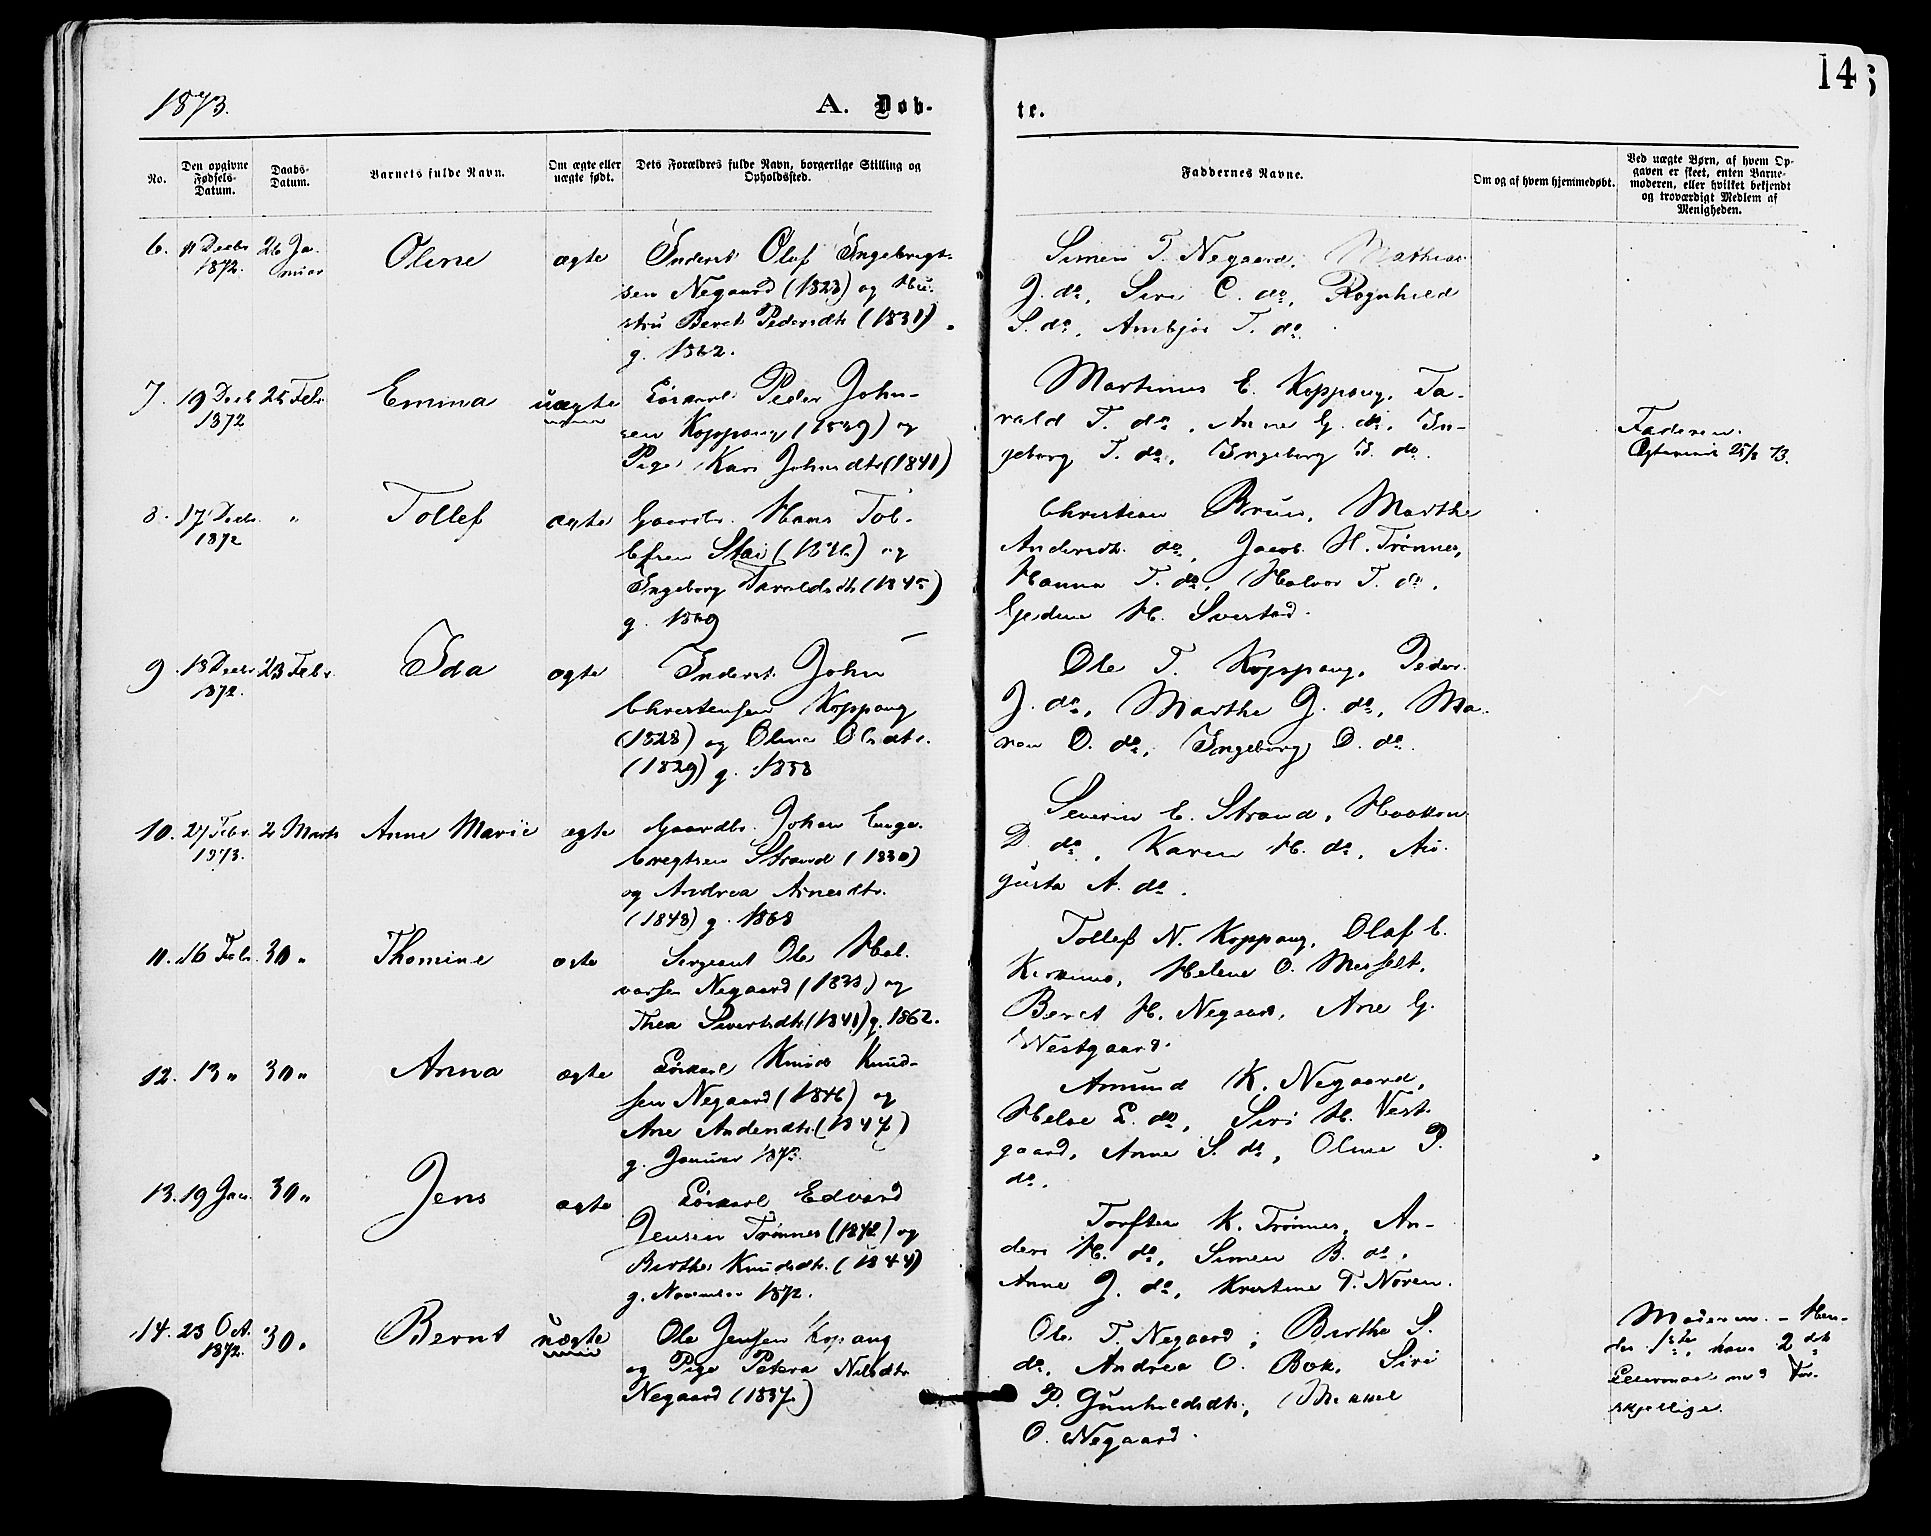 14
1873.
A. Døb-
te.
No.
Den opgivne Fødsels-Datum.
Daabs-Datum.
Barnets fulde Navn.
Om ægte eller uægte født.
Dets Forældres fulde Navn, borgerlige Stilling og Opholdssted.
Faddernes Navne.
Om og af hvem hjemmedøbt.
Ved uægte Børn, af hvem Opgaven er skeet, enten Barnemoderen, eller hvilket bekjendt og troværdigt Medlem af Menigheden.
6. 11 Decbr 1872. 26 Januar Oline ægte
Inderst Olaf Ingebrigt-
sen Negaard (1823) og Hu-
stru Beret Pedersdtr (1831)
g. 1862.
Simen T. Negaard, Mathias
J. do, Siri C. do, Rognhild
S. do, Ambjør T. do.
7. 19 Decb 1872 Febr Emma uægte
Løskarl Peder John-
sen Koppang (1849) og
Pige Kari Johnsdtr (1841)
Martinus E. Koppang, Ta-
rald T. do, Anne G. do, In-
geborg T. do, Ingeborg J. do.
Faderen.
8. 17 Decbr. 1872 " Tollef ægte
Gaardbr. Hans Tol-
lefsen Stai og
Ingeborg Taraldsdtr (1845)
g. 1869
Christian Bruun, Marthe
Andersdtr. do, Jacob H. Trønnes,
Hanna T. do, Halvor T. do,
H. Sverstad.
9. 13 Decbr 1872. 23 Febr. Ida ægte
Inderst John
Christensen Koppang
(1828) og Oline Olsdtr.
(1829) g. 1858
Ole T. Koppang, Peder
J. do, Marthe G. do, Ma-
ren O. do, Ingeborg O. do.
10. 27 Febr. 1873. 2 Marts Anne Marie ægte
Gaardbr. Johan Enge-
bregtsen Strand (1830)
og Andrea Arnesdtr.
(1848) g. 1868
Severin E. Strand, Haakon
D. do, Karen H. do, Au-
gusta A. do.
11. 16 Febr. 30 " Thomine ægte
Sergeant Ole Hal-
vorsen Negaard (1833) og
Thea Sivertsdtr (1841) g. 1862.
Tollef N. Koppang, Olaf E.
Helene O. Messelt,
Beret H. Negaard, Ane G.
Westgaard.
12. 13 " 30 " Anna ægte
Løskarl Knud Knud-
sen Negaard (1846) og
Ane Andersdtr. (1847)
g. Januar 1873.
Amund K. Negaard,
Helge L. do, Siri H. Vest-
gaard, Anne S. do, Oline P.
do.
13. 19 Jan. 30 " Jens ægte
Løskarl Edvard
Jensen Trønnes (1842) og
Birthe Knudsdtr. (1844)
g. November 1872.
Torsten K. Trønnes, An-
ders H. do, Simen B. do,
Anne J. do, Kristine T. Noren.
14. 23 Oct. 1872. 30 " Bernt uægte
Ole Jensen Kopang
og Pige Petera Nilsdtr
Negaard (1837)
Ole T. Negaard, Birthe S.
do, Andrea O. Bok, Siri
P. Gunhildsdtr,
O. Negaard.
Moderen. - Hen-
des 1ste, hans 2det
Leiermaal med For-
skjellige.